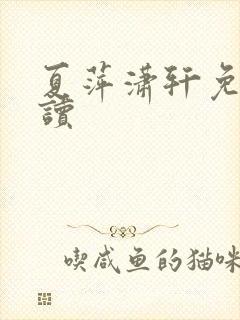 夏萍潇轩免
讀
喫咸鱼的猫咪